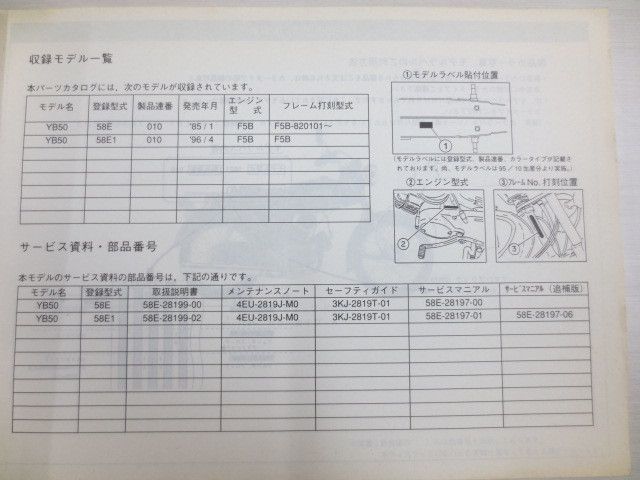 収録モデル一覧
本パーツカタログには、次のモデルが収録されています。
モデル名 登録型式 製品連番 発売年月 エンジン型式 フレーム打刻型式
YB50 58E 010 '85/1 F5B F5B-820101～
YB50 58E1 010 '96/4 F5B F5B
①モデルラベル貼付位置
①
(モデルラベルには登録型式、製品連番、カラータイプが記載されております。尚、モデルラベルは95/10生産分より実施。)
②エンジン型式
②
③フレームNo.打刻位置
③
サービス資料・部品番号
本モデルのサービス資料の部品番号は、下記の通りです。
モデル名 登録型式 取扱説明書 メンテナンスノート セーフティガイド サービスマニアル サービスマニアル(追補版)
YB50 58E 58E-28199-00 4EU-2819J-M0 3KJ-2819T-01 58E-28197-00
YB50 58E1 58E-28199-02 4EU-2819J-M0 3KJ-2819T-01 58E-28197-01 58E-28197-06